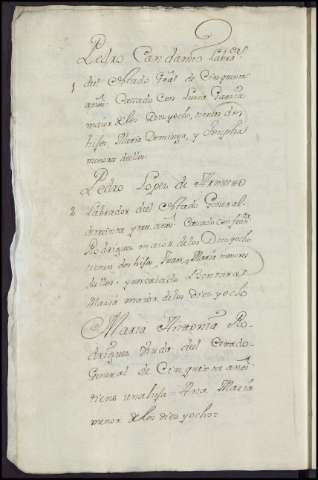 Pedro Candamo Labrador
1 del estado Gral de Cinquenta
años Casado con Lucia Garcia
maior de los Diez yocho, tienen dos
hijas, Maria Dominga, y Josepha
menores
Pedro Lopez de
2 Labrador del estado General
de treinta y años Casado con
Rodriguez maior de los Diez yocho
tienen dos hijos Juan, y Maria menores
y
Maria maior de los diez y ocho
Maria Antonia Ro-
driguez Viuda del Estado
General de Cinquenta años
tiene una hija Ana Maria
menor de los diez yocho